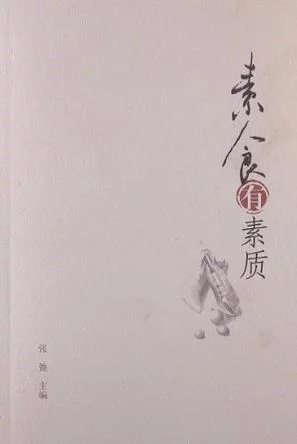 素食有素质
张弛 主编